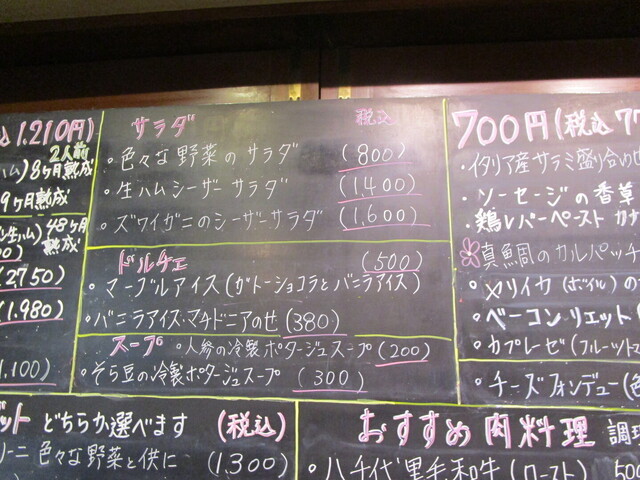 1.210円)
2人前
8ヶ月熟成
9ヶ月熟成
生ハム) 48ヶ月
熟成
(2.750)
(1.980)
1.100)
サラダ 税込
・色々な野菜の サラダ (800)
・生ハムシーザー サラダ (1400)
・ズワイガニのシーザーサラダ (1,600)
ドルチェ (500)
・マーブルアイス (ガトーショコラと バニラアイス)
・バニラアイス・マチドニアのせ (380)
スープ ・人参の冷製ポタージュスープ (200)
・そら豆の冷製ポタージュスープ (300)
700円 (税込 77
・イタリア産サラミ盛り合わせ
・ソーセージの香草
・鶏レバーペースト ガー
真鯛のカルパッチ
・メリイカ (ボイル) の
・ベーコンリエット (
・カプレーゼ (フルーツトマ
・チーズフォンデュー (色
ット どちらか選べます (税込)
ーニ 色々な野菜と供に (1,300)
おすすめ 肉料理 調理
・八千代黒毛和牛 (ロースト) 500